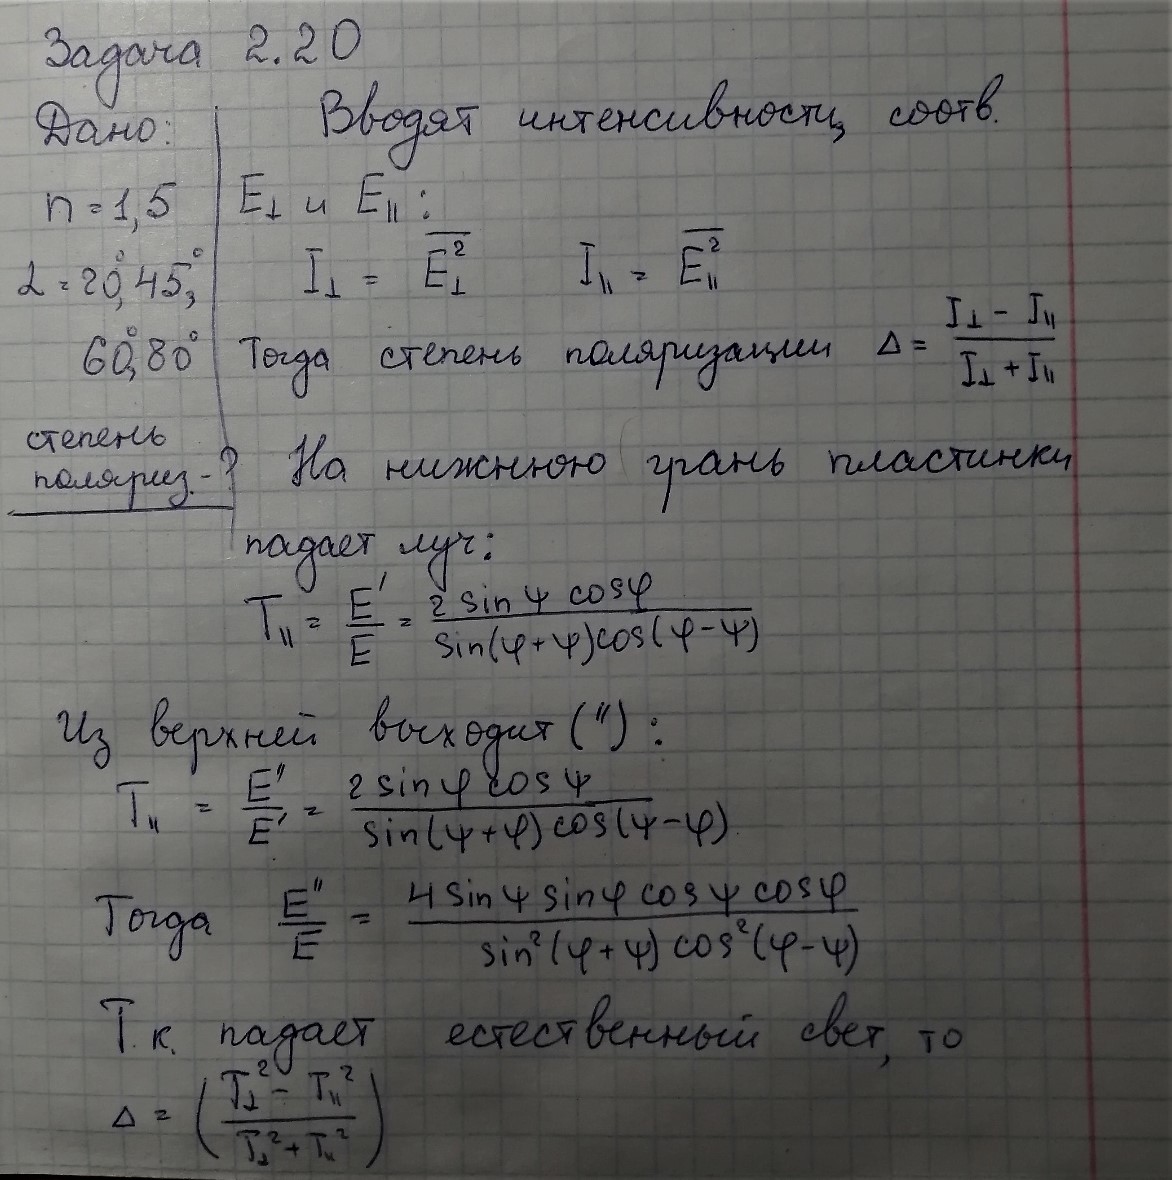 Задача 2.20
Дано:
n = 1,5
α = 20°, 45°,
60°, 80°
степень
поляриз. - ?
Вводят интенсивности, соотв.
E⊥ и E|| :
I⊥ = \overline{E⊥²}   I|| = \overline{E||²}
Тогда степень поляризации Δ = (I⊥ - I||)/(I⊥ + I||)
На нижнюю грань пластинки
падает луч:
T|| = E'/E = (2 sin ψ cos φ)/(sin(φ+ψ)cos(φ-ψ))
Из верхней выходит (") :
T|| = E"/E' = (2 sin φ cos ψ)/(sin(ψ+φ) cos(ψ-φ))
Тогда E"/E = (4 sin ψ sin φ cos ψ cos φ)/(sin²(φ+ψ) cos²(φ-ψ))
Т.к. падает естественный свет, то
Δ = ((T⊥² - T||²)/(T⊥² + T||²))